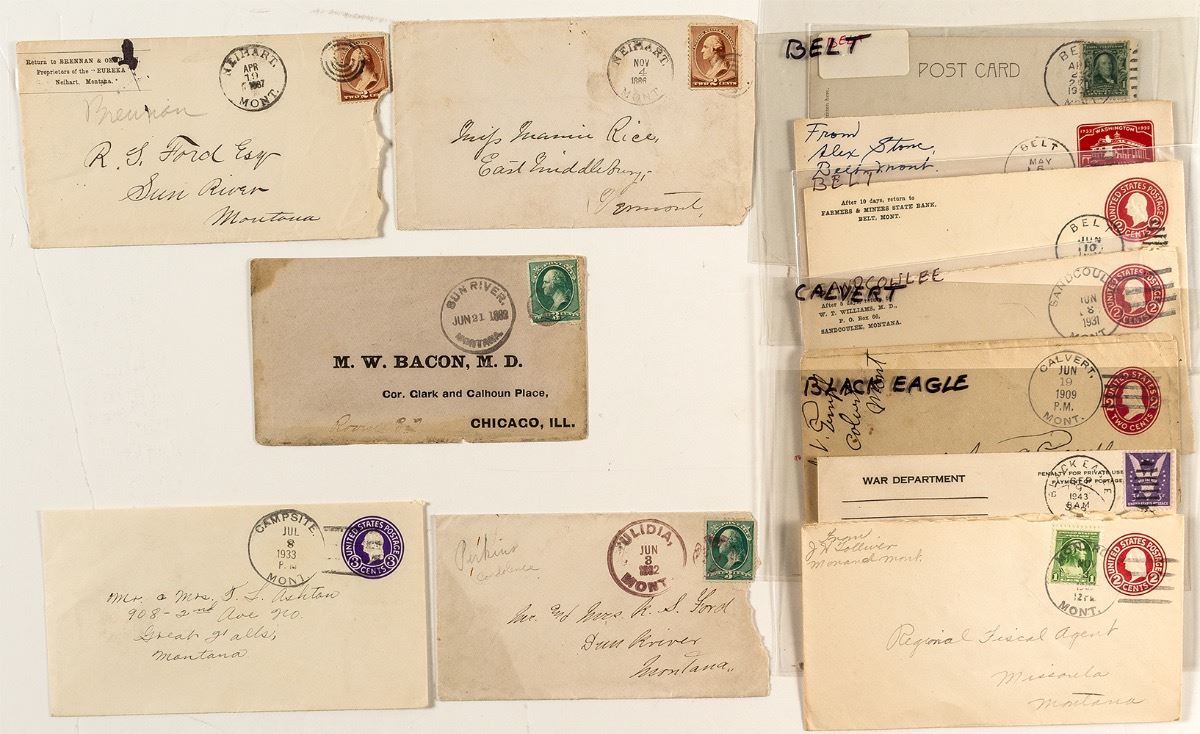 Return to BRENNAN &
Proprietors of the "EUREKA
Neihart, Montana.
NEIHART.
APR
19
1887
MONT.
TWO CENTS
Brennan
R. S. Ford Esq
Sun River
Montana
NEIHART.
NOV
4
1886
MONT.
TWO CENTS
Miss Mamie Rice,
East Middlebury,
Vermont,
SUN RIVER,
JUN 21
MONTANA.
M. W. BACON, M. D.
Cor. Clark and Calhoun Place,
CHICAGO, ILL.
CAMPSITE
JUL
8
1933
P.M
MONT.
UNITED STATES POSTAGE
3 CENTS 3
Mr. & Mrs. T. L. Ashton
908-2nd Ave No.
Great Falls,
Montana
ULIDIA,
JUN
3
MONT.
Perkins
Mr and Mrs R. S. Ford
Sun River
Montana.
BELT
BELT
POST CARD
BELT
From
Alex Stone,
Belt, Mont.
BELT
MAY
1732 WASHINGTON 1932
BELT
After 10 days, return to
FARMERS & MINERS STATE BANK,
BELT, MONT.
BELT
JUN
10
UNITED STATES POSTAGE
2 CENTS 2
SANDCOULEE
CALVERT
After 5 days, return to
W. T. WILLIAMS, M. D.,
P. O. Box 66,
SANDCOULEE, MONTANA.
SANDCOUL
JUN
8
1931
MONT.
UNITED STATES POSTAGE
2 CENTS 2
BLACK EAGLE
Calvert
Mont
CALVERT,
JUN
19
1909
P.M.
MONT.
UNITED STATES POSTAGE
2 TWO CENTS 2
WAR DEPARTMENT
PENALTY FOR PRIVATE USE
PAYMENT OF POSTAGE
BLACK EAGLE
SEP
1943
8 AM
From
J. H. Tolliver
Monarch Mont.
MONARCH
MONT.
UNITED STATES POSTAGE
2 CENTS 2
Regional Fiscal Agent
Missoula
Montana